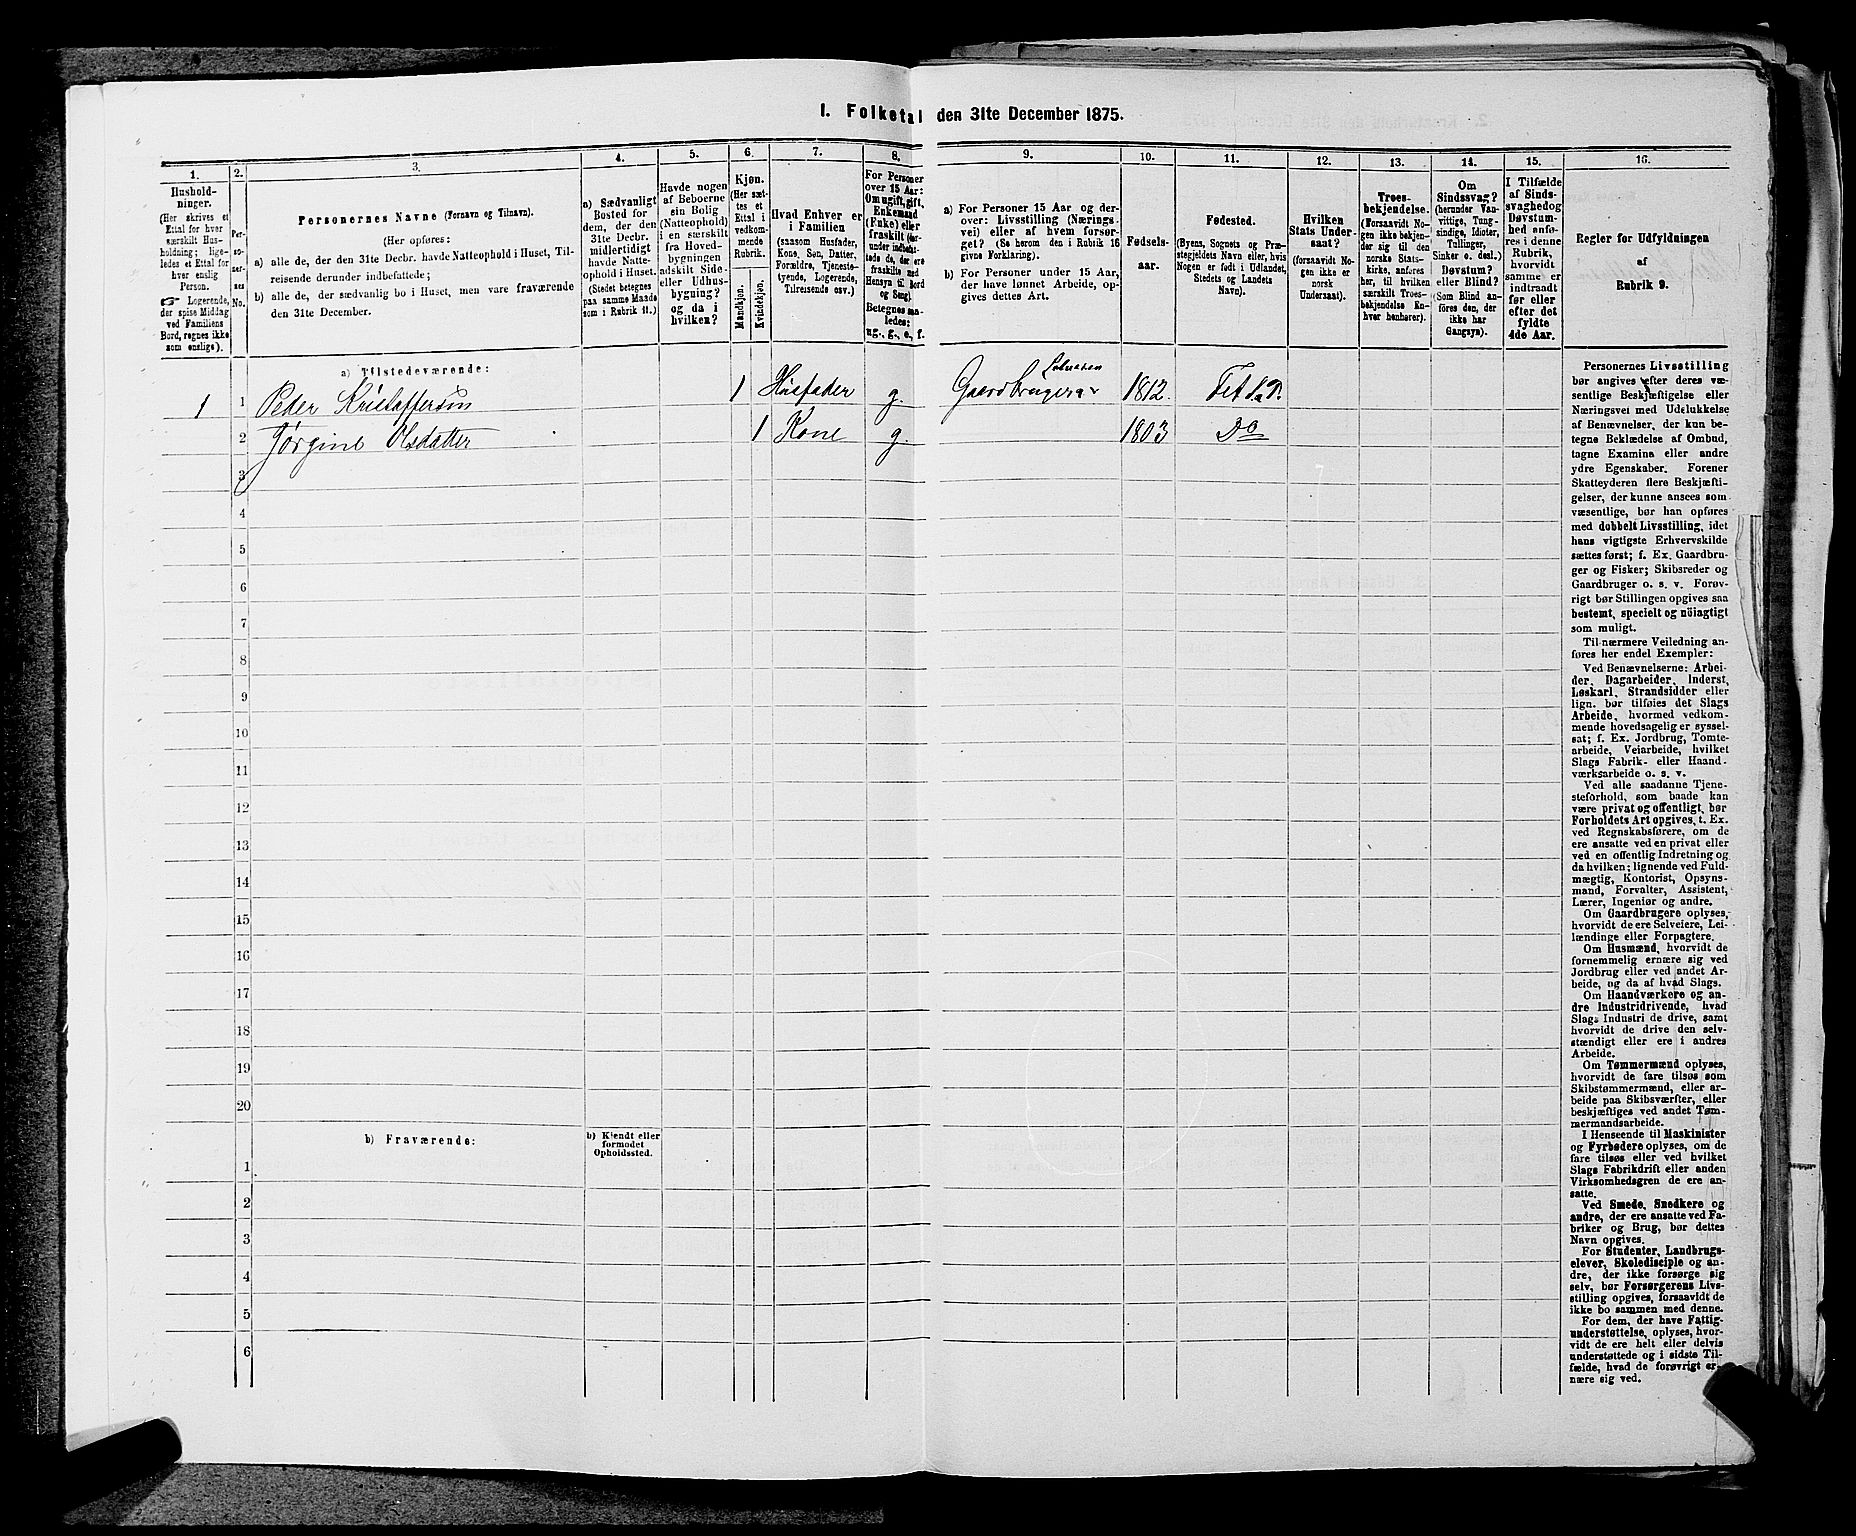 I. Folketal den 31te December 1875.
1.
Hushold-
ninger.
(Her skrives et
Ettal for hver
særskilt Hus-
holdning; lige-
ledes et Ettal for
hver enslig
Person.
☞ Logerende,
der spise Middag
ved Familiens
Bord, regnes ikke
som enslige).
2.
Per-
so-
ner-
nes
No.
3.
Personernes Navne (Fornavn og Tilnavn).
(Her opføres:
a) alle de, der den 31te Decbr. havde Natteophold i Huset, Til-
reisende derunder indbefattede;
b) alle de, der sædvanlig bo i Huset, men vare fraværende
den 31te December.
4.
a) Sædvanligt
Bosted for
dem, der den
31te Decbr.
midlertidigt
havde Natte-
ophold i Huset.
(Stedet betegnes
paa samme Maade
som i Rubrik 11.)
5.
Havde nogen
af Beboerne
sin Bolig
(Natteophold)
i en særskilt
fra Hoved-
bygningen
adskilt Side-
eller Udhus-
bygning?
og da i
hvilken?
6.
Kjøn.
(Her sæt-
tes et
Ettal i
vedkom-
mende
Rubrik.
Mandkjøn.
Kvindekjøn.
7.
Hvad Enhver er
i Familien
(saasom Husfader,
Kone, Søn, Datter,
Forældre, Tjeneste-
tyende, Logerende,
Tilreisende osv.)
8.
For Personer
over 15 Aar:
Om ugift, gift,
Enkemand
(Enke) eller
fraskilt (her-
under indbefat-
tede de, der ere
fraskilte med
Hensyn til Bord
og Seng).
Betegnes saa-
ledes:
ug., g., e., f.
9.
a) For Personer 15 Aar og der-
over: Livsstilling (Nærings-
vei) eller af hvem forsør-
get? (Se herom den i Rubrik 16
givne Forklaring).
b) For Personer under 15 Aar,
der have lønnet Arbeide, op-
gives dettes Art.
10.
Fødsels-
aar.
11.
Fødested.
(Byens, Sognets og Præ-
stegjeldets Navn, eller, hvis
Nogen er født i Udlandet,
Stedets og Landets
Navn).
12.
Hvilken
Stats Under-
saat?
(forsaavidt No-
gen ikke er
norsk
Undersaat).
13.
Troes-
bekjendelse.
(Forsaavidt No-
gen ikke bekjen-
der sig til den
norske Stats-
kirke, anføres
her, til hvilken
særskilt Troes-
bekjendelse En-
hver henhører).
14.
Om
Sindssvag?
(herunder Van-
vittige, Idioter,
Tullinger,
Sinker o. desl.)
Døvstum?
eller Blind?
(Som Blind an-
føres den, der
ikke har
Gangsyn).
15.
I Tilfælde
af Sinds-
svaghed og
Døvstum-
hed anfø-
res i denne
Rubrik,
hvorvidt
samme er
indtraadt
før eller
efter det
fyldte
4de Aar.
16.
Regler for Udfyldningen
af
Rubrik 9.
a) Tilstedeværende:
1 1 Peder Kristoffersøn 1 Husfader g. Gaardbruger 1812. Fet S. & P.
2 Jørgine Olsdatter 1 Kone g. 1803 Do
3
4
5
6
7
8
9
10
11
12
13
14
15
16
17
18
19
20
b) Fraværende:
b) Kjendt eller
formodet
Opholdssted.
1
2
3
4
5
6
Personernes Livsstilling
bør angives efter deres væ-
sentlige Beskjæftigelse eller
Næringsvei med Udelukkelse
af Benævnelser, der kun be-
tegne Beklædelse af Ombud,
tagne Examina eller andre
ydre Egenskaber. Forener
Skatteyderen flere Beskjæfti-
gelser, der kunne ansees som
væsentlige, bør han opføres
med dobbelt Livsstilling, idet
hans vigtigste Erhvervskilde
sættes først; f. Ex. Gaardbru-
ger og Fisker; Skibsreder og
Gaardbruger o. s. v. Forøv-
rigt bør Stillingen opgives saa
bestemt, specielt og nöiagtigt
som muligt.
Til nærmere Veiledning an-
føres her endel Exempler:
Ved Benævnelserne: Arbei-
der, Dagarbeider, Inderst,
Løskarl, Strandsidder eller
lign. bør tilføies det Slags
Arbeide, hvormed vedkom-
mende hovedsagelig er syssel-
sat; f. Ex. Jordbrug, Tomte-
arbeide, Veiarbeide, hvilket
Slags Fabrik- eller Haand-
værksarbeide o. s. v.
Ved alle saadanne Tjene-
steforhold, som baade kan
være privat og offentligt, bør
Forholdets Art opgives, t. Ex.
ved Regnskabsførere, om de
ere ansatte ved en privat eller
ved en offentlig Indretning og
da hvilken; lignende ved Fuld-
mægtig, Kontorist, Opsyns-
mand, Forvalter, Assistent,
Lærer, Ingeniør og andre.
Om Gaardbrugere oplyses,
hvorvidt de ere Selveiere, Lei-
lændinge eller Forpagtere.
Om Husmænd, hvorvidt de
fornemmelig ernære sig ved
Jordbrug eller ved andet Ar-
beide, og da af hvad Slags.
Om Haandværkere og an-
dre Industridrivende, hvad
Slags Industri de drive, samt
hvorvidt de drive den selv-
stændigt eller ere i andres
Arbeide.
Om Tømmermænd oplyses,
hvorvidt de fare tilsøs som
Skibstømmermænd, eller ar-
beide paa Skibsværfter, eller
beskjæftiges ved andet Tøm-
mermandsarbeide.
I Henseende til Maskinister
og Fyrbødere oplyses, om de
fare tilsøs eller ved hvilket
Slags Fabrikdrift eller anden
Virksomhedsgren de ere an-
satte.
Ved Smede, Snedkere og
andre, der ere ansatte ved Fa-
briker og Brug, bør dettes
Navn opgives.
For Studenter, Landbrugs-
elever, Skoledisciple og an-
dre, der ikke forsørge sig
selv, bør Forsørgerens Livs-
stilling opgives, forsaavidt de
ikke bo sammen med denne.
For dem, der have Fattig-
understøttelse, oplyses, hvor-
vidt de ere helt eller delvis
understøttede og i sidste Til-
fælde, hvad de forøvrigt er-
nære sig ved.